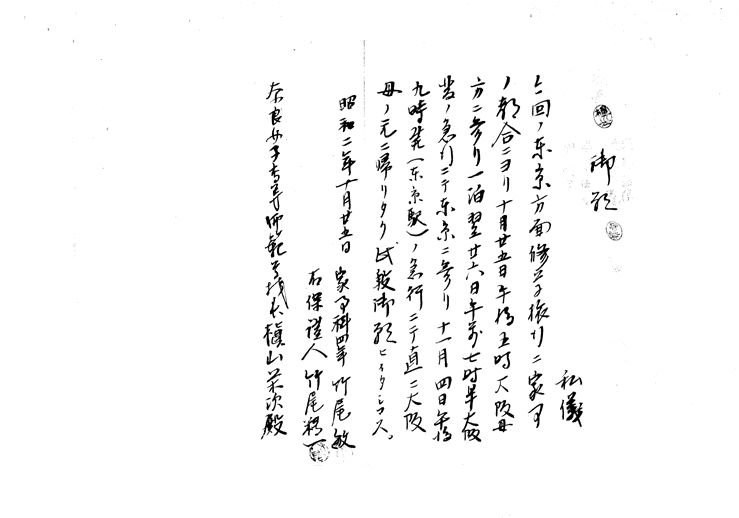 御願
私儀
今回ノ東京方面修学旅行ニ家事
ノ都合ニヨリ十月廿五日午後五時大阪母
方ニ参リ一泊翌廿六日午前七時半大阪
発ノ急行ニテ東京ニ参リ十一月四日午后
九時発(東京駅)ノ急行ニテ直ニ大阪
母ノ元ニ帰リタク此段御願ヒイタシマス。
昭和二年十月廿五日
家事科四年 竹尾敏
右保證人 竹尾
奈良女子高等師範学校長槇山栄次殿